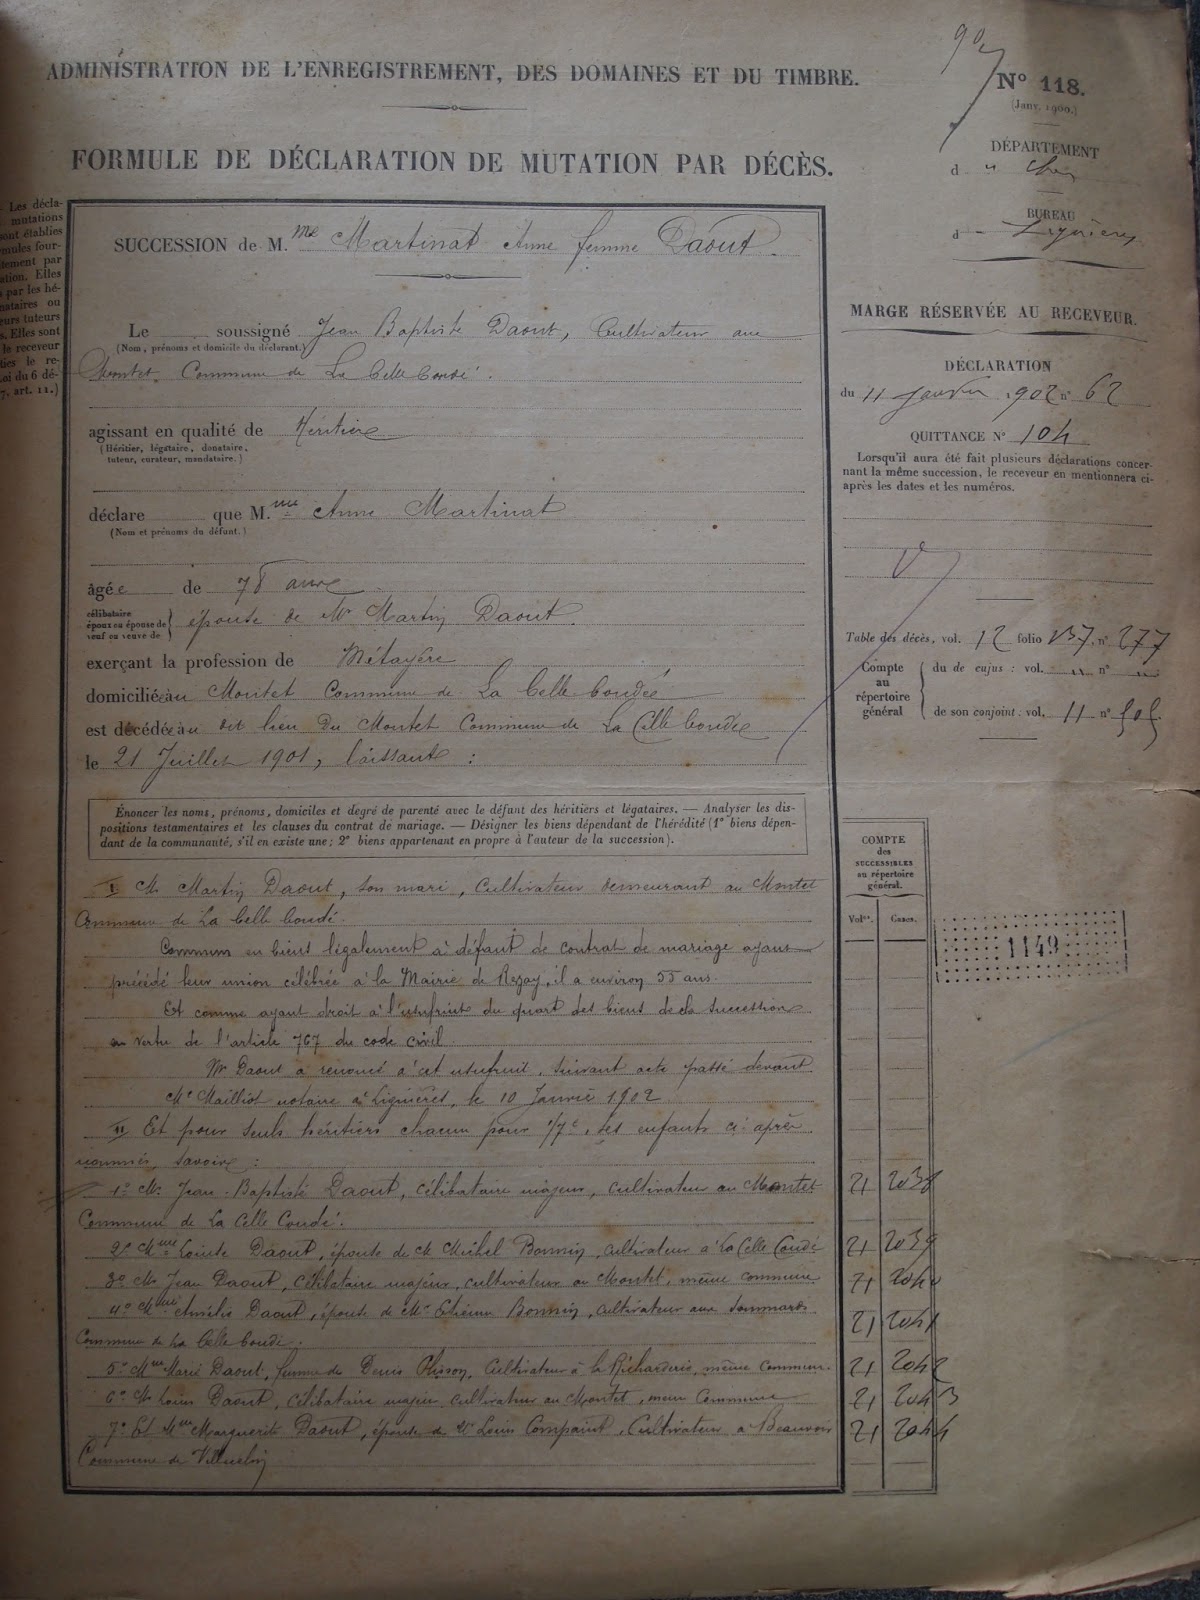 ADMINISTRATION DE L'ENREGISTREMENT, DES DOMAINES ET DU TIMBRE.
N° 118.
(Janv. 1900.)
FORMULE DE DÉCLARATION DE MUTATION PAR DÉCÈS.
DÉPARTEMENT
d u Cher
BUREAU
d Lignières
Les décla-
mutations
sont établies
mules four-
tement par
ation. Elles
par les hé-
nataires ou
eurs tuteurs
s. Elles sont
le receveur
ties le re-
Loi du 6 dé-
7, art. 11.)
SUCCESSION de M.me Martinat Anne femme Daout.
Le soussigné Jean Baptiste Daout, Cultivateur au
(Nom, prénoms et domicile du déclarant.)
Montet Commune de La Celle Condé.
agissant en qualité de Héritier
(Héritier, légataire, donataire,
tuteur, curateur, mandataire.)
déclare que M.me Anne Martinat
(Nom et prénoms du défunt.)
âgée de 78 ans
célibataire
époux ou épouse de
veuf ou veuve de
épouse de Mr Martin Daout.
exerçant la profession de Métayère
domiciliée au Montet Commune de La Celle Condé
est décédée au dit lieu du Montet Commune de La Celle Condé
le 21 Juillet 1901, laissant :
Énoncer les noms, prénoms, domiciles et degré de parenté avec le défunt des héritiers et légataires. — Analyser les dis-
positions testamentaires et les clauses du contrat de mariage. — Désigner les biens dépendant de l'hérédité (1° biens dépen-
dant de la communauté, s'il en existe une; 2° biens appartenant en propre à l'auteur de la succession).
I M. Martin Daout, son mari, Cultivateur demeurant au Montet
Commune de La Celle Condé.
Commun en biens légalement à défaut de contrat de mariage ayant
précédé leur union célébrée à la Mairie de Rezay, il a environ 55 ans.
Et comme ayant droit à l'usufruit du quart des biens de la succession
en vertu de l'article 767 du code civil.
Mr Daout a renoncé à cet usufruit, suivant acte passé devant
Me Mailliot notaire à Lignières, le 10 Janvier 1902
II Et pour seuls héritiers chacun pour 1/7e, ses enfants ci-après
nommés, savoir :
1° M. Jean-Baptiste Daout, célibataire majeur, cultivateur au Montet
Commune de La Celle Condé.
2° Mme Louise Daout, épouse de M. Michel Bonnin, cultivateur à La Celle Condé
3° M. Jean Daout, célibataire majeur, cultivateur au Montet, même commune
4° Mme Amélie Daout, épouse de Mr Etienne Bonnin, cultivateur aux
Commune de La Celle Condé.
5° Mme Marie Daout, femme de Denis Plisson, Cultivateur à la Richarderie, même commune.
6° M. Louis Daout, célibataire majeur, cultivateur au Montet, même Commune
7° Et Mme Marguerite Daout, épouse de Mr Louis Compaint, Cultivateur à Beauvoir
Commune de Villecelin
MARGE RÉSERVÉE AU RECEVEUR.
DÉCLARATION
du 11 janvier 1902 n° 62
QUITTANCE N° 104
Lorsqu'il aura été fait plusieurs déclarations concer-
nant la même succession, le receveur en mentionnera ci-
après les dates et les numéros.
Table des décès, vol. 12 folio 137, n° 277
Compte
au
répertoire
général
du de cujus : vol. " n° "
de son conjoint : vol. 11 n° 505
COMPTE
des
SUCCESSIBLES
au répertoire
général.
Voles. Cases.
1149
21 2038
21 2039
21 2040
21 2041
21 2042
21 2043
21 2044